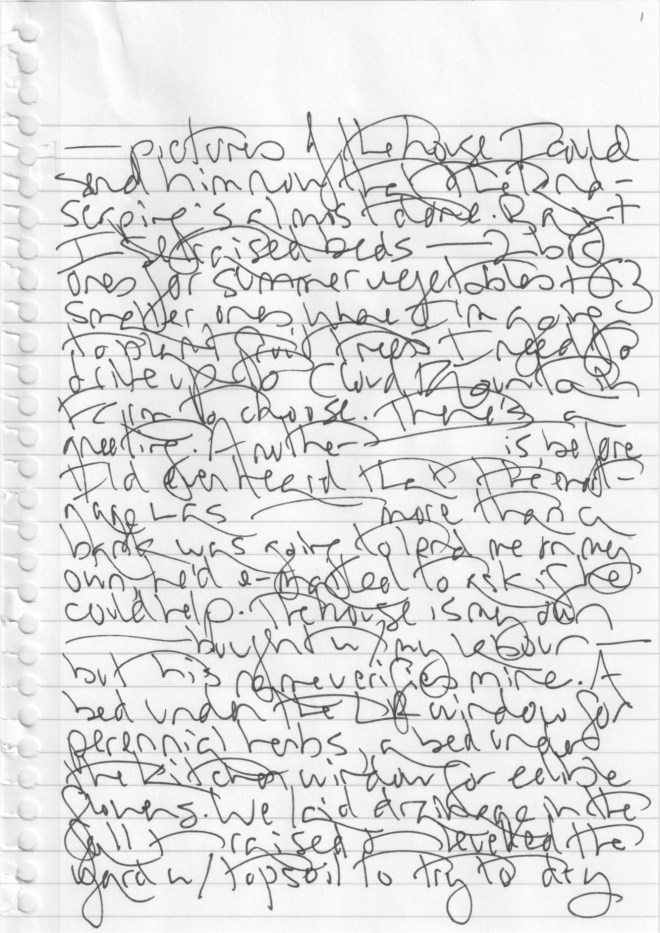 1
— pictures of the house I could
send him now that the land-
scaping is almost done. But
I raised beds — 2 big
ones for summer vegetables + 3
smaller ones where I'm going
to plant fruit trees. I need to
drive up to Cloud Mountain
Farm to choose. There's a
greeting. Another is before
I'd even heard that the mort-
gage was — more than a
bank was going to lend me on my
own he'd e-mailed to ask if he
could help. The house is my own
— bought w/ my labour —
but his name verifies mine. A
bed under the window for
perennial herbs, a bed under
the kitchen window for edible
flowers. We laid drainage in the
fall + raised + leveled the
yard w/ topsoil to try to dry